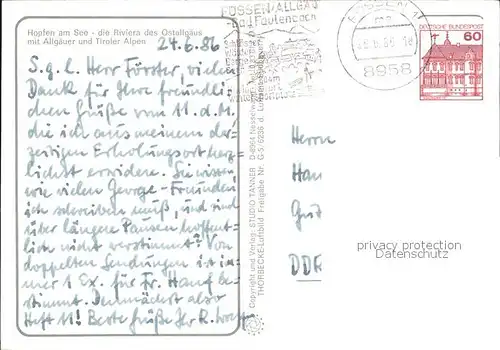 Hopfen am See - die Riviera des Ostallgäus
mit Allgäuer und Tiroler Alpen
24.6.86
S.g.l. Herr Förster, vielen
Dank für Ihre freundli-
chen Grüße vom 11.d.M.
die ich aus meinem der-
zeitigen Erholungsort herz-
lichst erwidere. Sie wissen,
wie vielen George-Freunden
ich schreiben muß, und sind
über längere Pausen hoffent-
lich nicht verstimmt? Von
doppelten Sendungen ist im-
mer 1 Ex. für Fr. Hanf be-
stimmt. Demnächst also
Heft 11! Beste Grüße Ihr R.
Copyright und Verlag: STUDIO TANNER
THORBECKE-Luftbild Freigabe Nr.
FÜSSEN/ALLGÄU
-Bad Faulenbach
FÜSSEN 1
8958
DEUTSCHE BUNDESPOST
60
Herrn
Han
DDR
privacy protection
Datenschutz